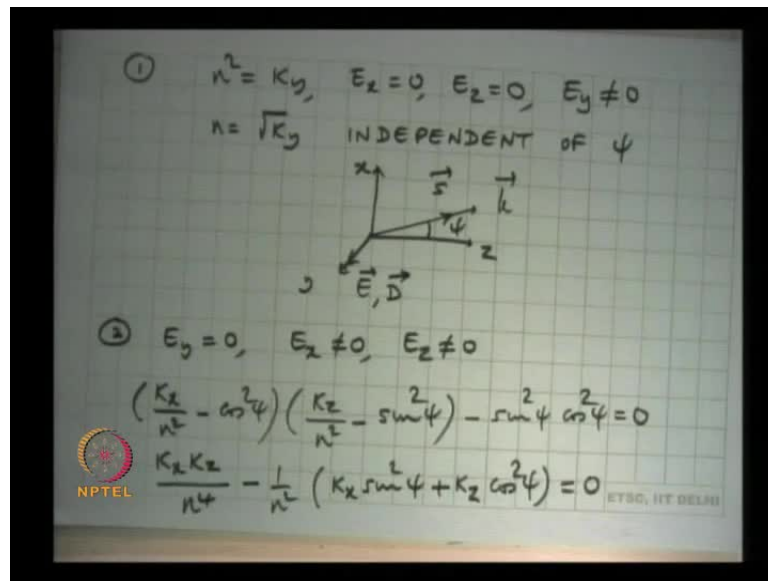 ① n² = Ky, Ex = 0, Ez = 0, Ey ≠ 0
n = √Ky INDEPENDENT OF ψ
x s⃗ k⃗
ψ
z
y E⃗, D⃗
② Ey = 0, Ex ≠ 0, Ez ≠ 0
(Kx/n² - cos²ψ)(Kz/n² - sin²ψ) - sin²ψ cos²ψ = 0
KxKz/n⁴ - 1/n² (Kx sin²ψ + Kz cos²ψ) = 0
NPTEL
ETSC, IIT DELHI